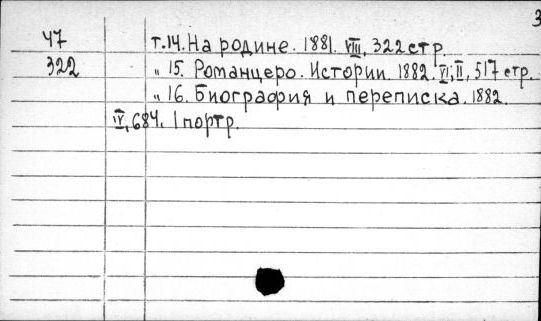 3
47 т.14. На родине. 1881. VIII, 322 стр.
322 " 15. Романцеро. Истории. 1882. VI; II, 517 стр.
" 16. Биография и переписка. 1882.
IV, 684. 1 портр.